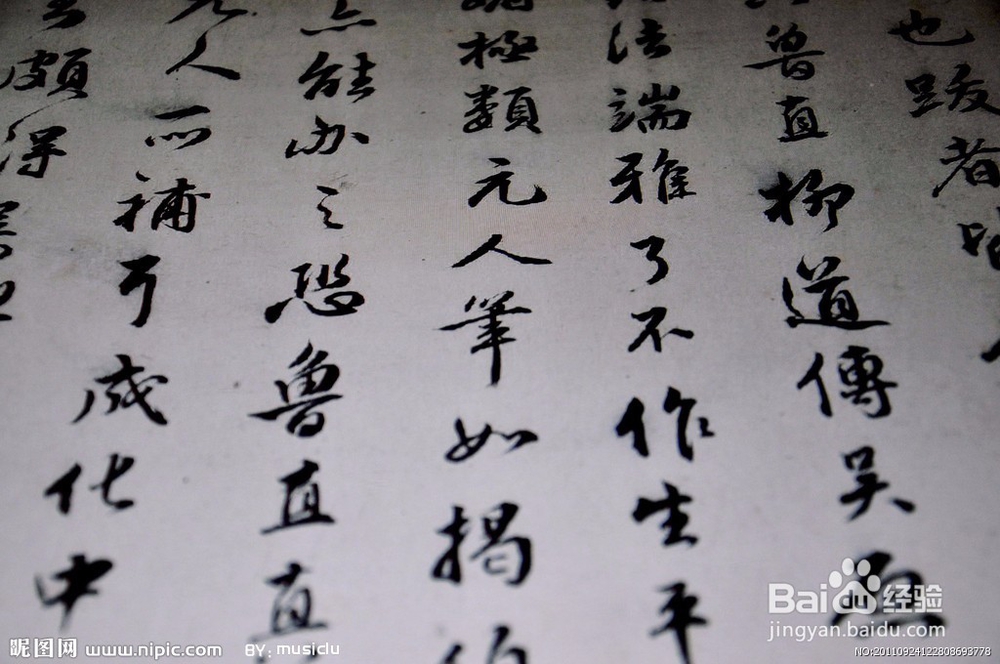 也跋者皆
魯直柳道傳吳
法端雅了不作生平
極類元人筆如揭
能办之恐魯直直
元人所補耳成化中
頗得
Baidu 经验
jingyan.baidu.com
昵图网 www.nipic.com BY: musiclu
NO:20110924122808693778